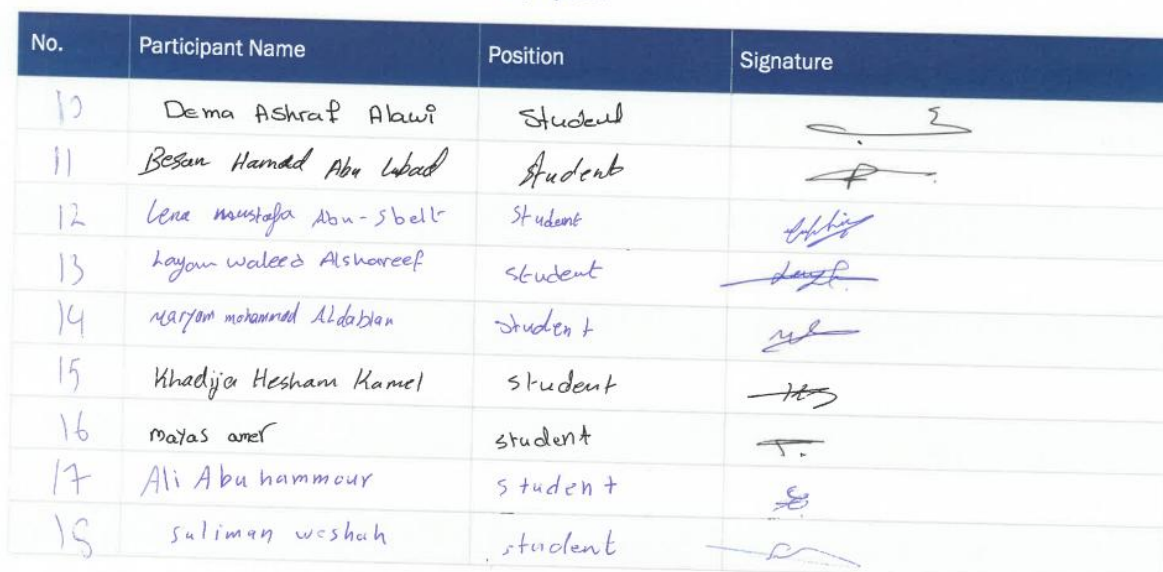 No. Participant Name Position Signature
10 Dema Ashraf Alawi Student
11 Besan Hamad Abu Lubad Student
12 Lena moustafa Abu-Sbeit Student
13 Layan waleed Alshareef student
14 Maryam mohammad Aldablan student
15 Khadija Hesham Kamel student
16 mayas amer student
17 Ali Abu hammour student
18 suliman weshah student